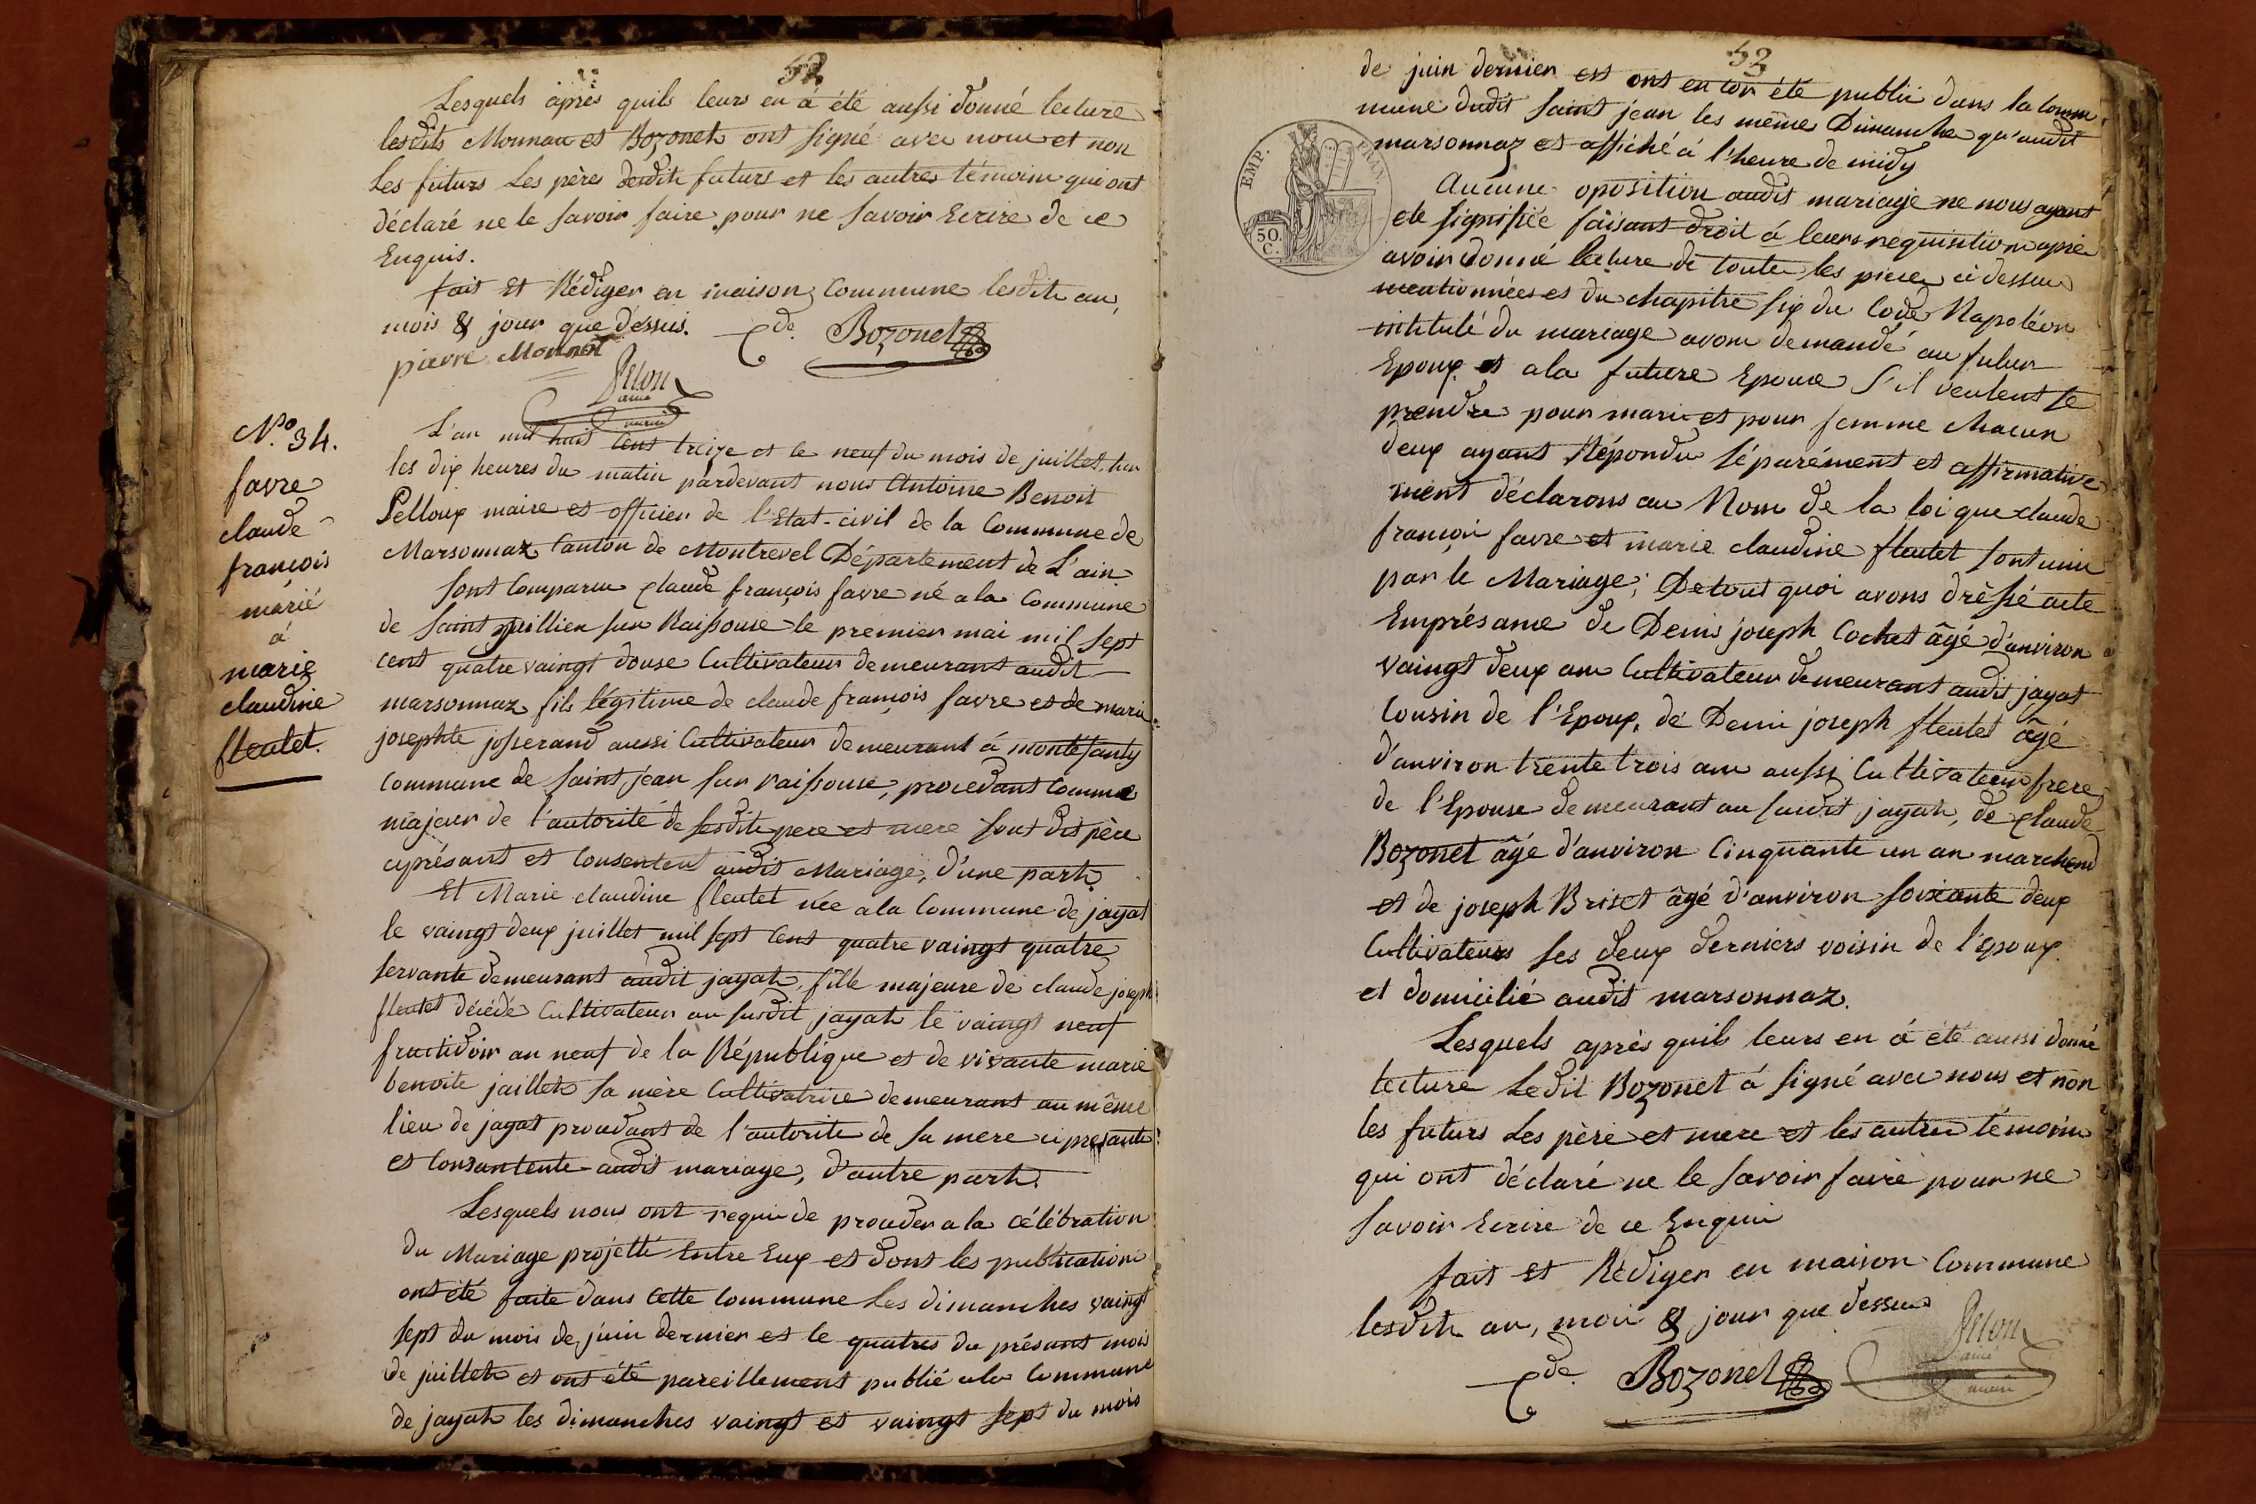 52
Lesquels après quils leurs en à été aussi donné lecture
lesdits Monnau et Bozonet ont signé avec nous et non
Les futurs Les pères desdits futurs et les autres témoins qui ont
déclaré ne le savoir faire pour ne savoir Ecrire de ce
Enquis.
fait Et Rédiger en maison Commune lesdits an,
mois & jour que dessus.
Cde. Bozonet
pierre Monnot
ainé
maire
No. 34.
favre
claude
françois
marié
à
marie
claudine
fleutet.
L'an mil huit Cent treize et le neuf du mois de juillet, sur
les dix heures du matin pardevant nous Antoine Benoit
Pelloux maire et officier de l'Etat-civil de la Commune de
Marsonnaz Canton de Montrevel Département de L'ain
sont Comparu claude françois favre né a la Commune
de saint juillien sur Raissouse le premier mai mil sept
cent quatre vaingt douse Cultivateur demeurant audit
marsonnaz fils légitime de claude françois favre et de marie
josephte josserand aussi Cultivateur demeurant à montésanty
commune de saint jean sur raissouse, procedant Comme
majeur de l'autorité de sesdits pere et mere sont dis père
ciprésant et Consentent audit Mariage, d'une part.
Et Marie claudine fleutet née a la Commune de jayat
le vaingt deux juillet mil sept Cent quatre vaingt quatre
servante demeurant audit jayat, fille majeure de claude joseph
fleutet décédé Cultivateur au susdit jayat le vaingt neuf
fructidoir an neuf de la République et de vivante marie
benoite jaillet sa mère Cultivatrice demeurant au même
lieu de jayat procedant de l'autorite de sa mere ci presante
et Consantente audit mariage, d'autre part.
Lesquels nous ont requis de proceder a la célébration
du Mariage projetté Entre Eux et dont les publications
ont été faite dans Cette Commune Les dimanches vaingt
sept du mois de juin dernier et le quatres du présant mois
de juillet et ont été pareillement publié a la Commune
de jayat les dimanches vaingt et vaingt sept du mois
53
de juin dernier et ont encor été publié dans la Comm
mune dudit saint jean les même Dimanche qu'audit
marsonnaz et affiché à l'heure de midy
EMP. FRAN.
50.
C.
Aucune oposition audit mariage ne nous ayant
été signifiée faisant droit à leurs requisition après
avoir donné lecture de toute les piece ci dessus
mentionnées et du chapitre six du Code Napoléon
intitulé du mariage avons demandé au futur
Epoux et a la future Epouse s'il veulent se
prendre pour mari et pour femme chacun
deux ayant Répondu séparément et affirmative
ment déclarons au Nom de la loi que claude
françois favre et marie claudine fleutet sont unis
par le Mariage; De tout quoi avons dressé acte
Emprésance de Denis joseph Cochet âgé d'anviron
vaingt deux ans Cultivateur demeurant audit jayat
Cousin de l'Epoux, de Denis joseph fleutet âgé
d'anviron trente trois ans aussi Cultivateur frere
de l'Epouse demeurant au susdit jayat, de claude
Bozonet âgé d'anviron Cinquante un an marchend
et de joseph Briset âgé d'anviron soixante deux
Cultivateurs ses deux derniers voisin de l'Epoux
et domicilié audit marsonnaz.
Lesquels après quils leurs en à été aussi donné
lecture Ledit Bozonet à signé avec nous et non
les futurs Les père et mere et les autres témoins
qui ont déclaré ne le savoir faire pour ne
savoir Ecrire de ce Enquis
fait Et Rédiger en maison Commune
lesdits an, mois & jour que dessus
Cde. Bozonet
ainé
maire